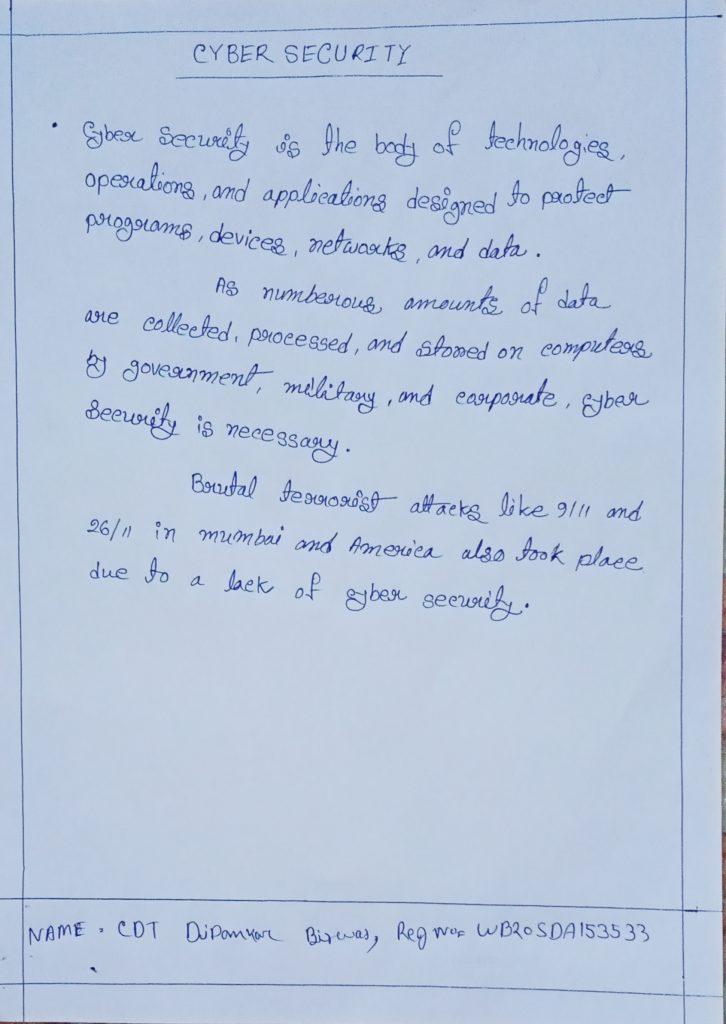 CYBER SECURITY
• Cyber Security is the body of technologies,
operations, and applications designed to protect
programs, devices, networks, and data.
As numberous amounts of data
are collected, processed, and stored on computers
by government, military, and corporate, cyber
Security is necessary.
Brutal terrorist attacks like 9/11 and
26/11 in mumbai and America also took place
due to a lack of cyber security.
NAME: CDT Dipankar Biswas, Reg No: WB20SDA153533